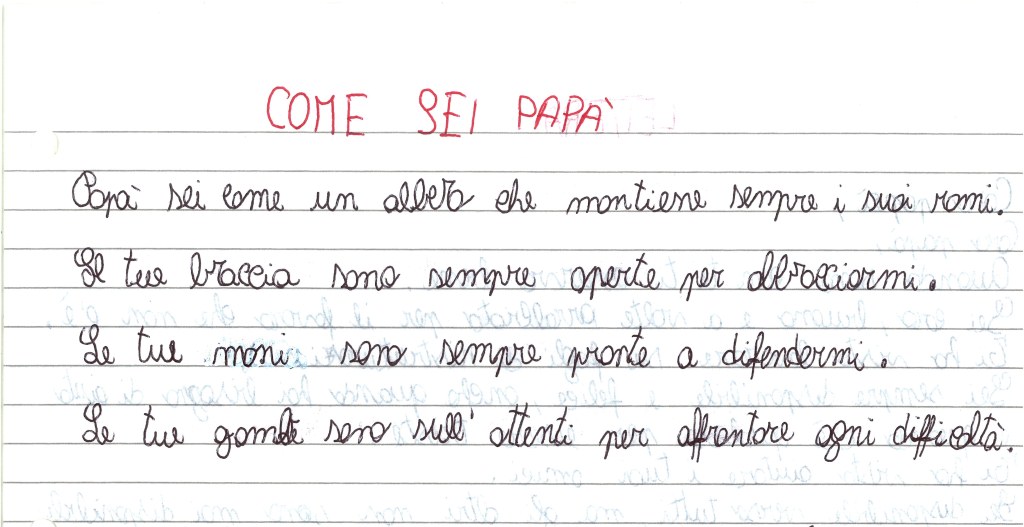 COME SEI PAPA'
Papà sei come un albero che mantiene sempre i suoi rami.
Le tue braccia sono sempre aperte per abbracciarmi.
Le tue mani sono sempre pronte a difendermi.
Le tue gambe sono sull'attenti per affrontare ogni difficoltà.